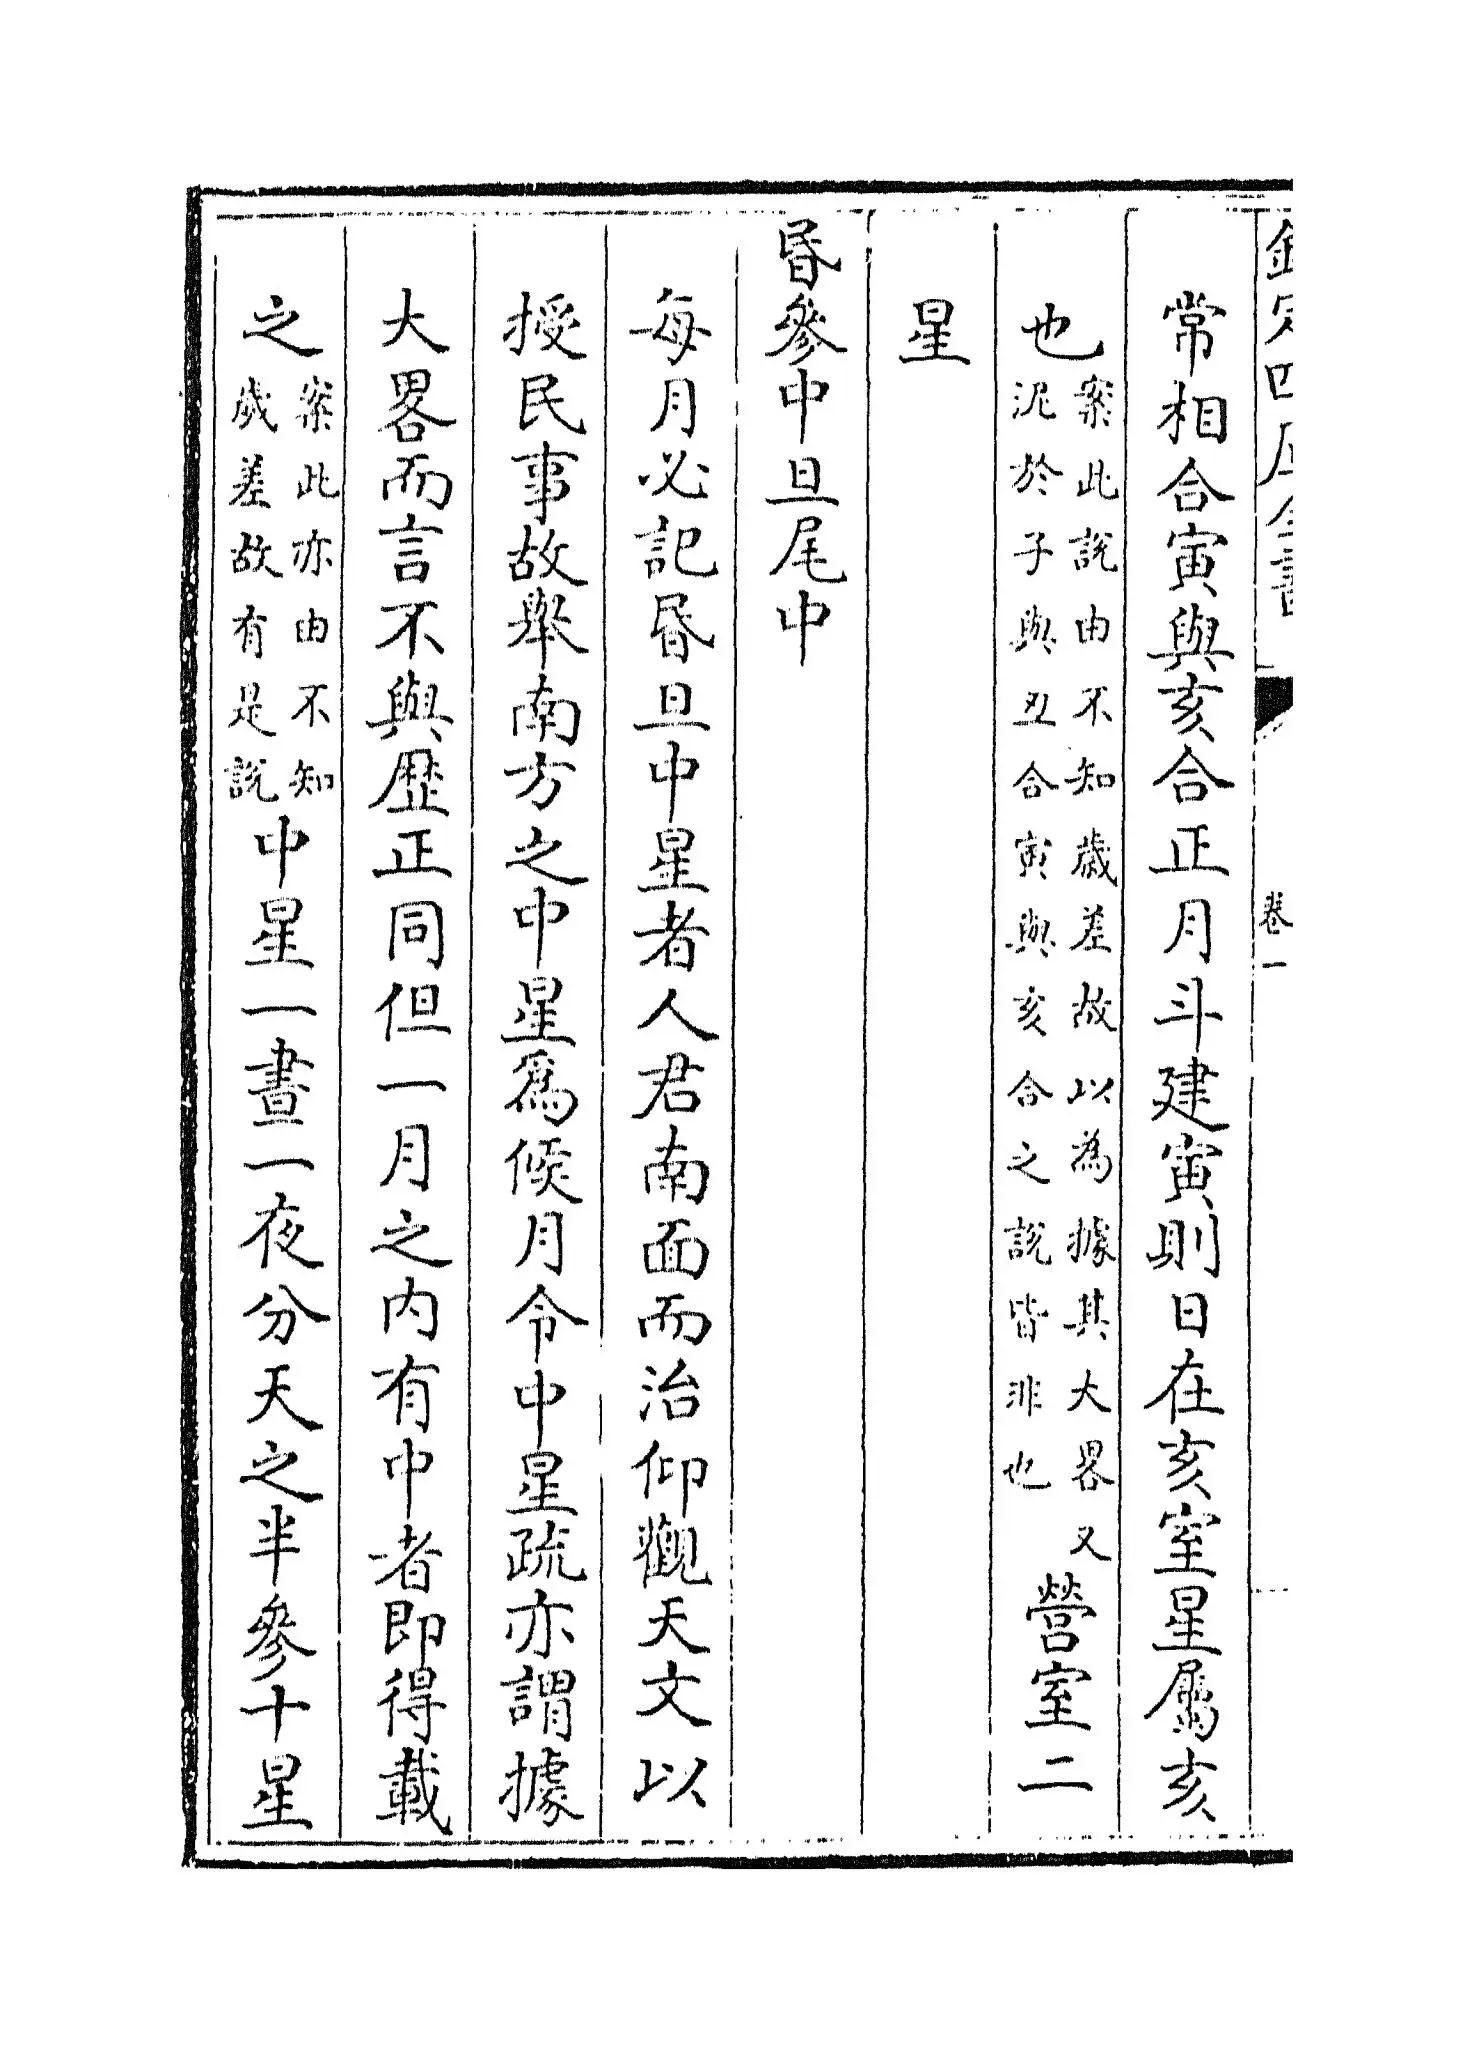 欽定四庫全書
卷一
常相合寅與亥合正月斗建寅則日在亥室星屬亥
也案此說由不知歲差故以為據其大畧又泥於子與丑合寅與亥合之說皆非也營室二
星
昏參中旦尾中
每月必記昏旦中星者人君南面而治仰觀天文以
授民事故舉南方之中星爲候月令中星疏亦謂據
大畧而言不與歴正同但一月之内有中者即得載
之案此亦由不知歲差故有是說中星一晝一夜分天之半參十星